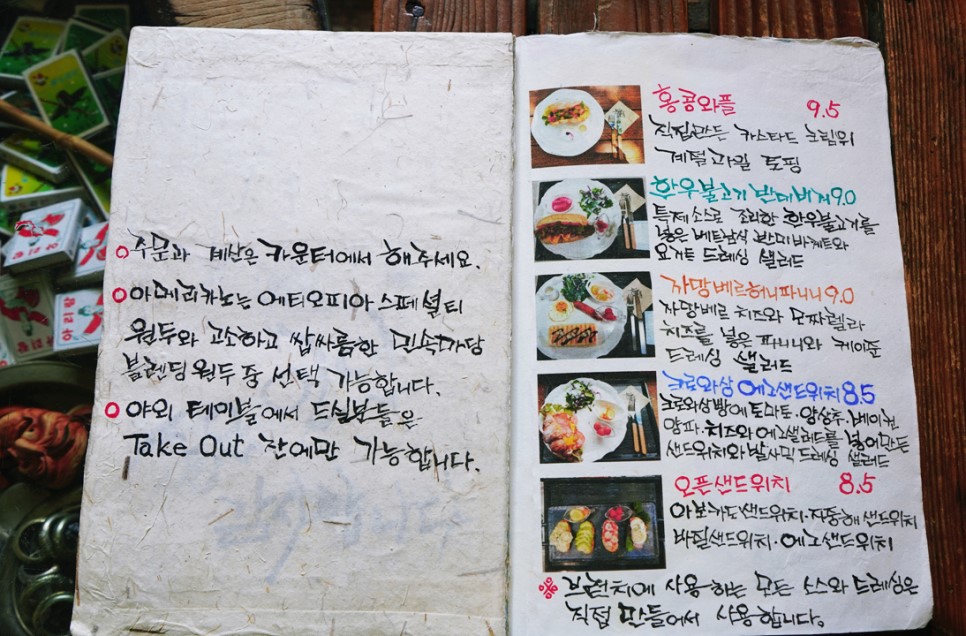 주문과 계산은 카운터에서 해주세요.
아메리카노는 에티오피아 스페셜티
원두와 고소하고 쌉싸름한 민속마당
블렌딩 원두 중 선택 가능합니다.
야외 테이블에서 드실분들은
Take Out 잔에만 가능합니다.
홍콩와플 9.5
직접만든 카스타드 크림위
계절과일 토핑
한우불고기 반미바게 9.0
특제소스로 조리한 한우불고기를
넣은 베트남식 반미 바게트와
요거트 드레싱 샐러드
까망베르허니파니니 9.0
까망베르 치즈와 모짜렐라
치즈를 넣은 파니니와 케이준
드레싱 샐러드
크로와상 에그샌드위치 8.5
크로와상빵에 토마토·양상추·베이컨
양파·치즈와 에그샐러드를 넣어만든
샌드위치와 발사믹 드레싱 샐러드
오픈샌드위치 8.5
아보카도샌드위치·지중해샌드위치
바질샌드위치·에그샌드위치
브런치에 사용하는 모든 소스와 드레싱은
직접 만들어서 사용합니다.